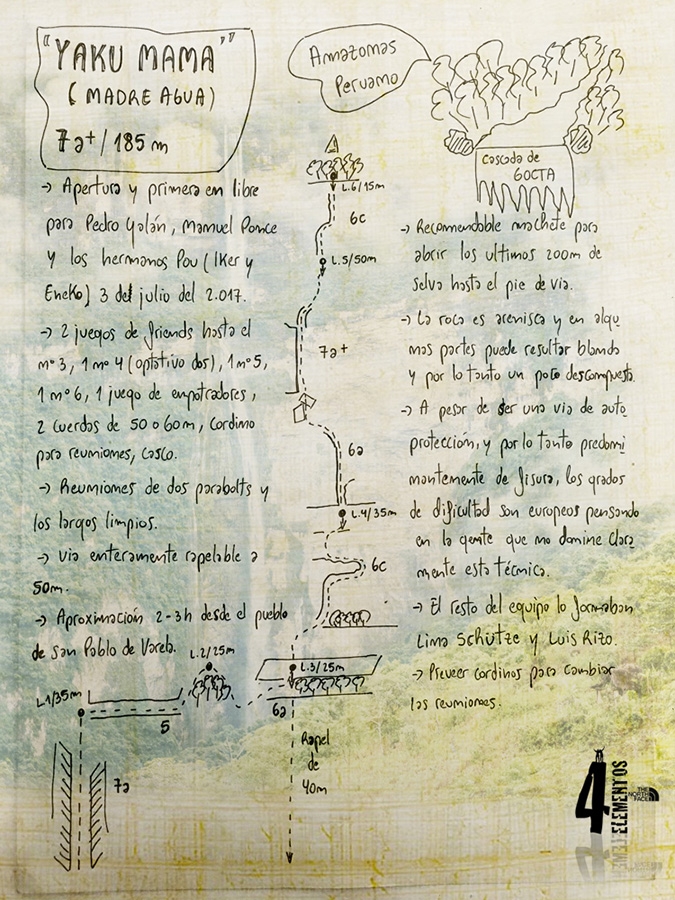 "YAKU MAMA"
(MADRE AGUA)
7a+/185m
→ Apertura y primera en libre
para Pedro Galán, Manuel Ponce
y los hermanos Pou (Iker y
Eneko) 3 del julio del 2.017.
→ 2 juegos de friends hasta el
nº3, 1 nº4 (optativo dos), 1 nº5,
1 nº6, 1 juego de empotradores,
2 cuerdas de 50 o 60m, cordino
para reuniones, casco.
→ Reuniones de dos parabolts y
los largos limpios.
→ via enteramente rapelable a
50m.
→ Aproximación 2-3h desde el pueblo
de San Pablo de Varela.
Amazonas
Peruano
Cascada de
GOCTA
L.6/15m
6c
L.5/50m
7a+
6a
L.4/35m
6c
L.3/25m
6a
L.2/25m
5
L1/35m
7a
Rapel
de
40m
→ Recomendable machete para
abrir los ultimos 200m de
selva hasta el pie de via.
→ La roca es arenisca y en algu
nas partes puede resultar blanda
y por lo tanto un poco descompuesta.
→ A pesar de ser una via de auto
protección, y por lo tanto predomi
nantemente de fisura, los grados
de dificultad son europeos pensando
en la gente que no domine clara
mente esta técnica.
→ El resto del equipo lo formaban
Lima Schütze y Luis Rizo.
→ Preveer cordinos para cambiar
las reuniones.
4 ELEMENTOS
THE
NORTH
FACE